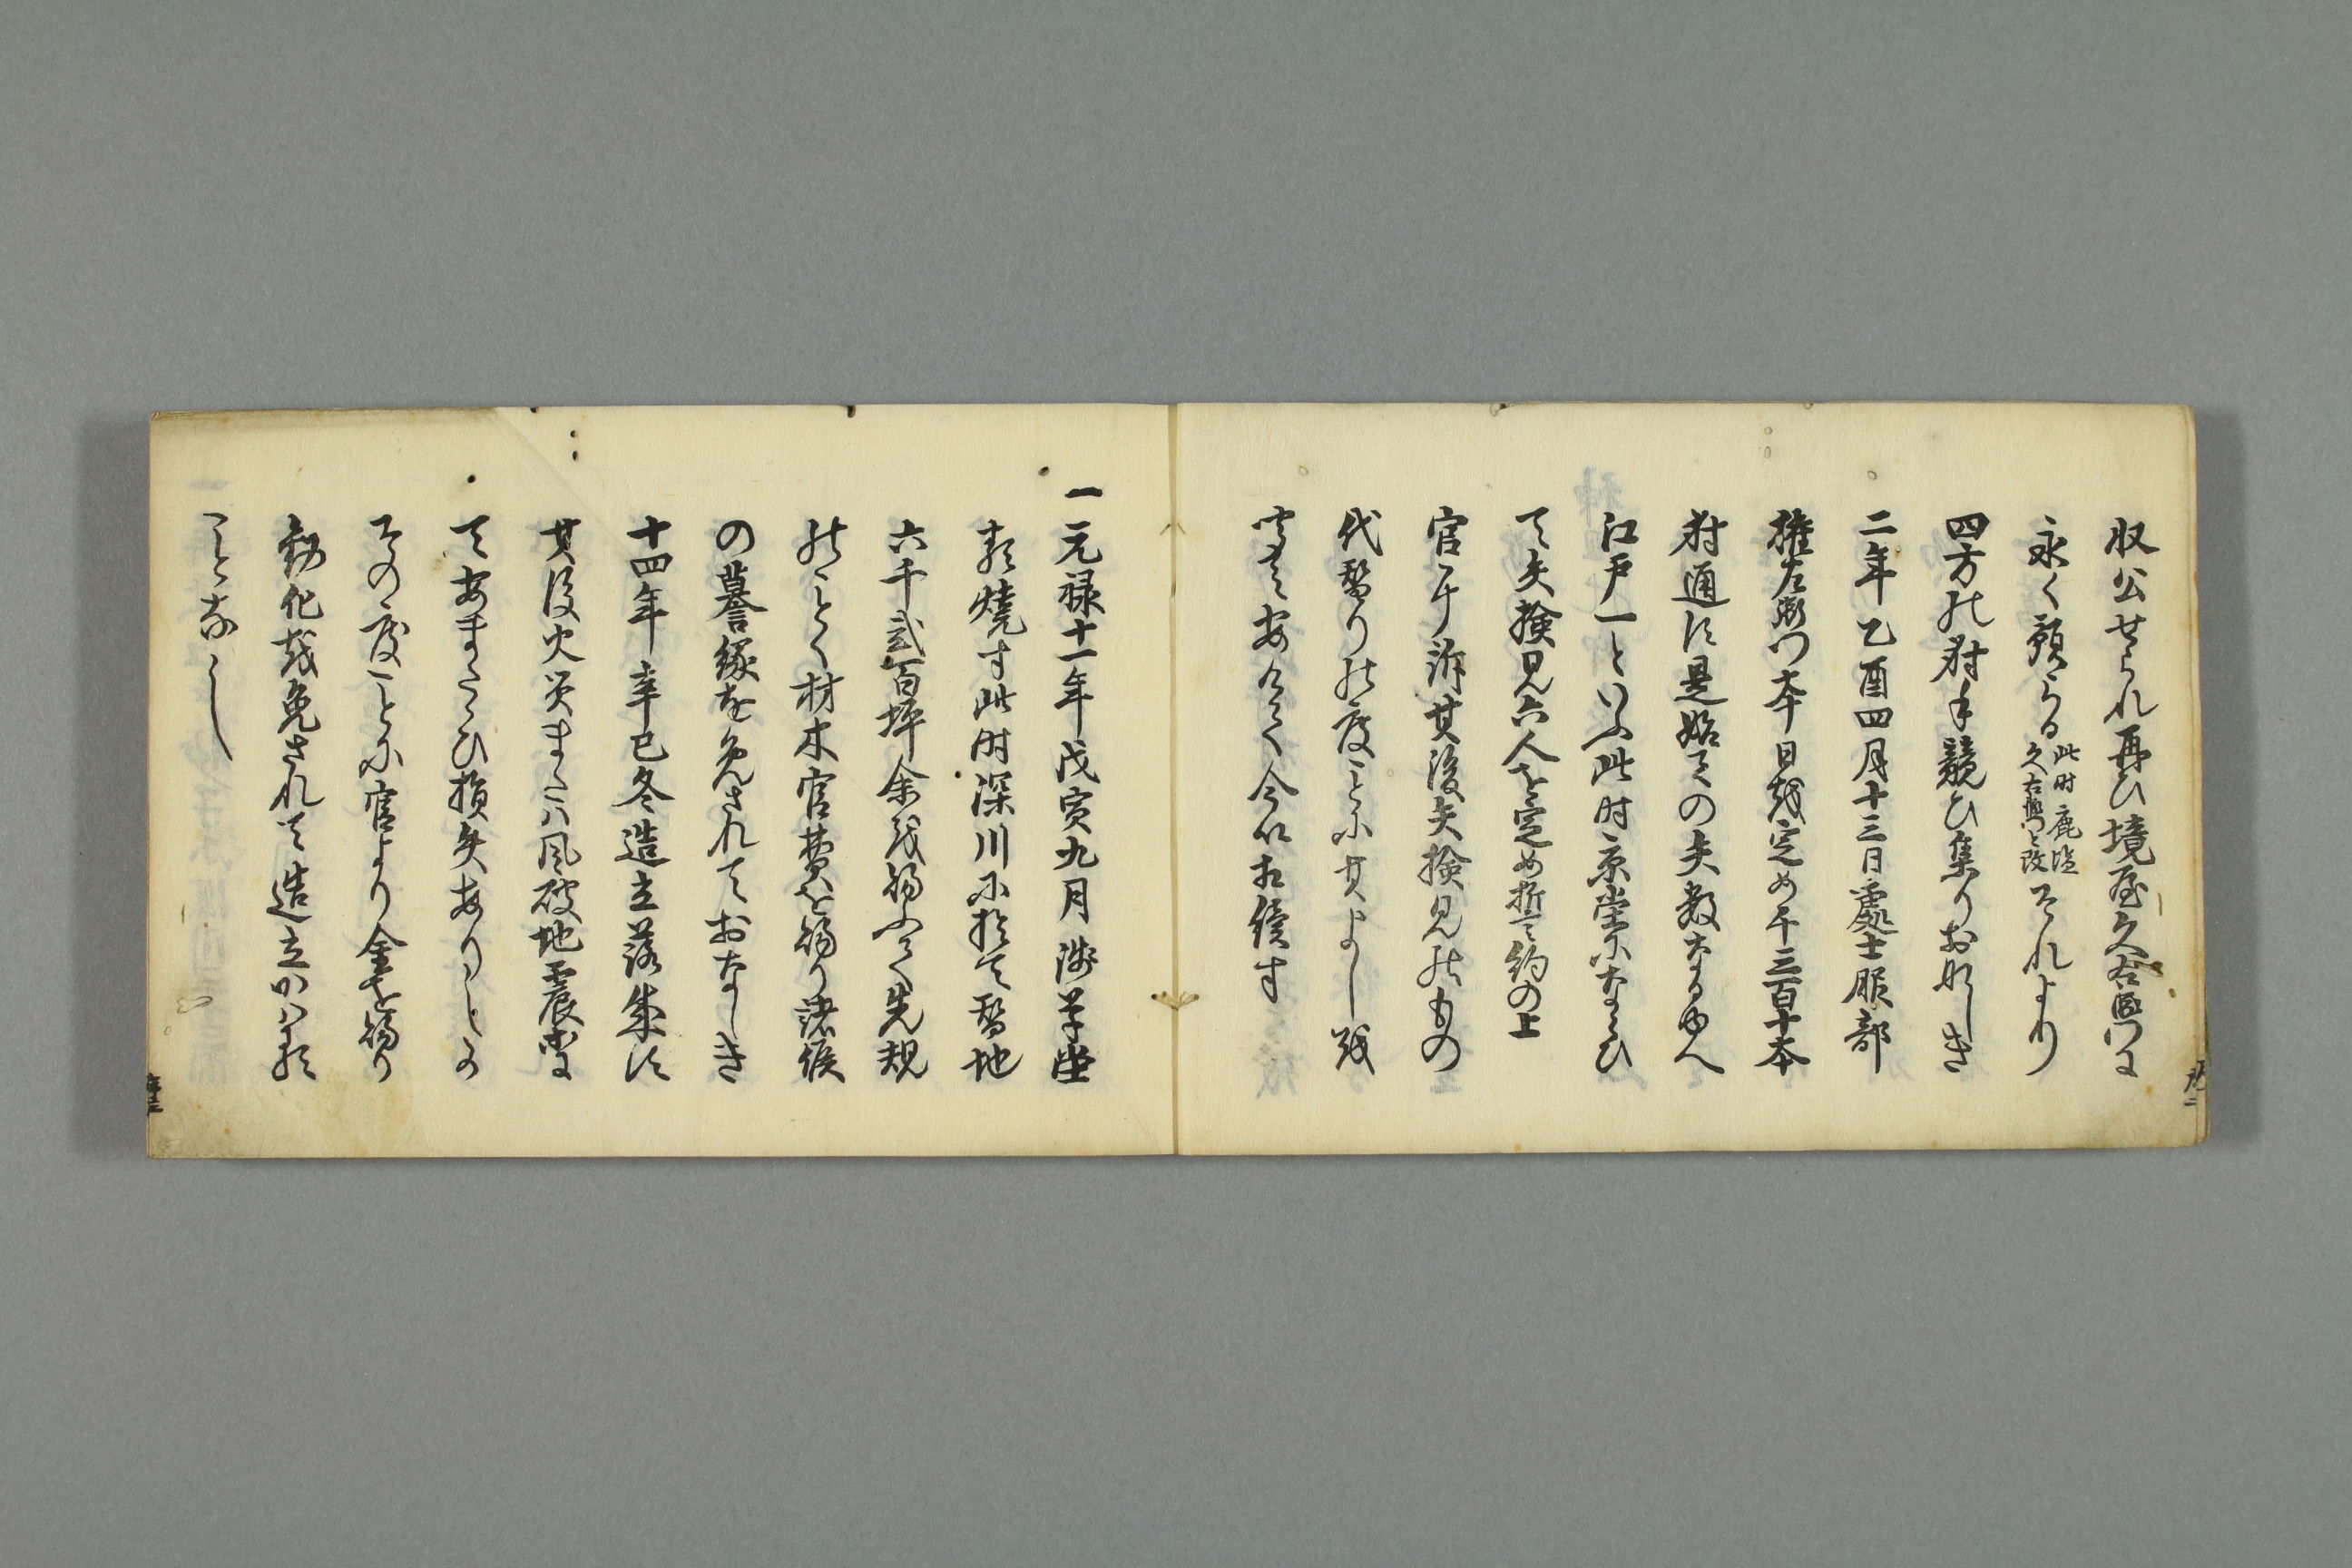 収公せられ再ひ境屋久右衛門に
永く預らる此时鹿塩久右衛門と改それより
四方の射手競ひ集りおなしき
二年乙酉四月十三日處士服部
権左衛门本日越定め千三百十本
射通に是始ての矢数なるゆへ
江戸一といふ此时京堂にならひ
て矢検見六人を定め誓て約の上
官庁訴其後矢検見のもの
代替りの度ことに其よし越
訴て安々く今以相續す
一元禄十一年戊寅九月御堂
類焼す此时深川に於て替地
六千貳百坪余越賜ふて先規
のことく材木官費を賜り諸侯
の募縁を免されておなしき
十四年辛巳冬造立落成に
其後火災または風破地震に
てあまたゝひ損失ありしに
その度ことに官より金を賜り
勧化越免されて造立かはる
ことなし